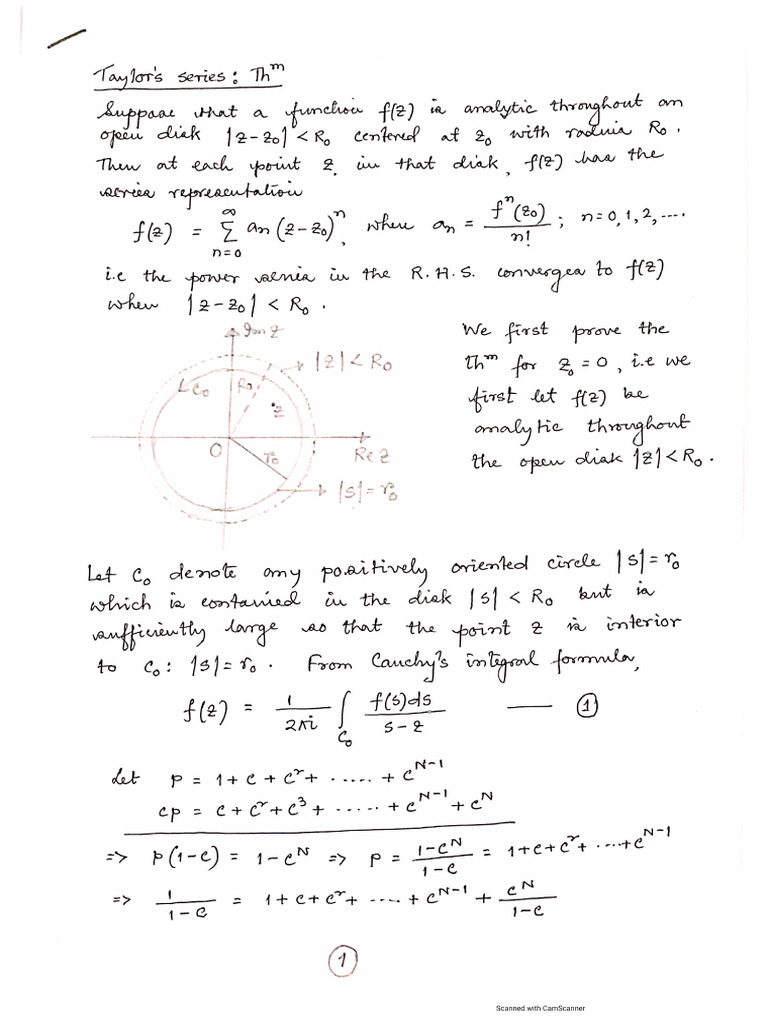 Taylor's series: Thᵐ
Suppose that a function f(z) is analytic throughout an
open disk |z-z₀| < R₀ centered at z₀ with radius R₀.
Then at each point z in that disk, f(z) has the
series representation
f(z) = ∑_{n=0}^{∞} aₙ (z-z₀)ⁿ, when aₙ = fⁿ(z₀)/n! ; n=0,1,2,....
i.e the power series in the R.H.S. converges to f(z)
when |z-z₀| < R₀.
Im z
|z| < R₀
C₀
R₀
z
O
r₀
Re z
|s| = r₀
We first prove the
thᵐ for z₀ = 0, i.e we
first let f(z) be
analytic throughout
the open disk |z| < R₀.
Let C₀ denote any positively oriented circle |s| = r₀
which is contained in the disk |s| < R₀ but is
sufficiently large so that the point z is interior
to C₀: |s| = r₀. From Cauchy's integral formula,
f(z) = 1/2πi ∫_{C₀} f(s)ds/s-z —— ①
Let p = 1 + c + c² + ..... + c^{N-1}
cp = c + c² + c³ + ..... + c^{N-1} + c^N
=> p(1-c) = 1-c^N => p = 1-c^N/1-c = 1+c+c²+ ....+c^{N-1}
=> 1/1-c = 1+c+c²+ .... + c^{N-1} + c^N/1-c
①
Scanned with CamScanner